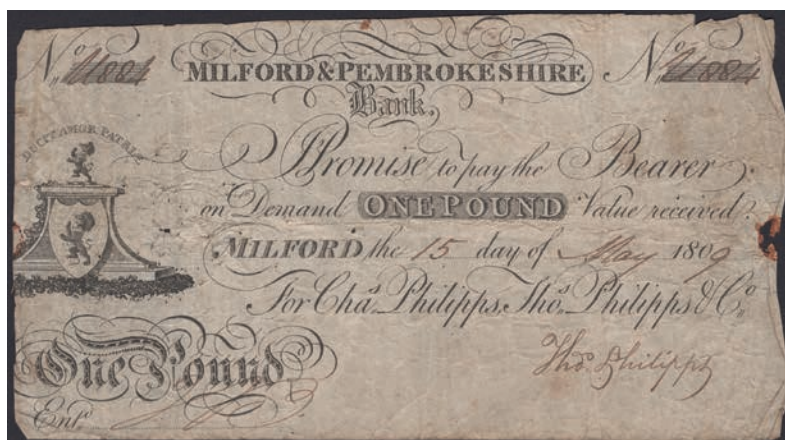 No. No.
MILFORD & PEMBROKESHIRE
Bank,
DUCIT AMOR PATRIÆ
I Promise to pay the Bearer
on Demand ONE POUND Value received.
MILFORD the 15 day of May 1809
For Chas. Philipps, Thos. Philipps & Co.
Thos. Philipps
One Pound
Entd.